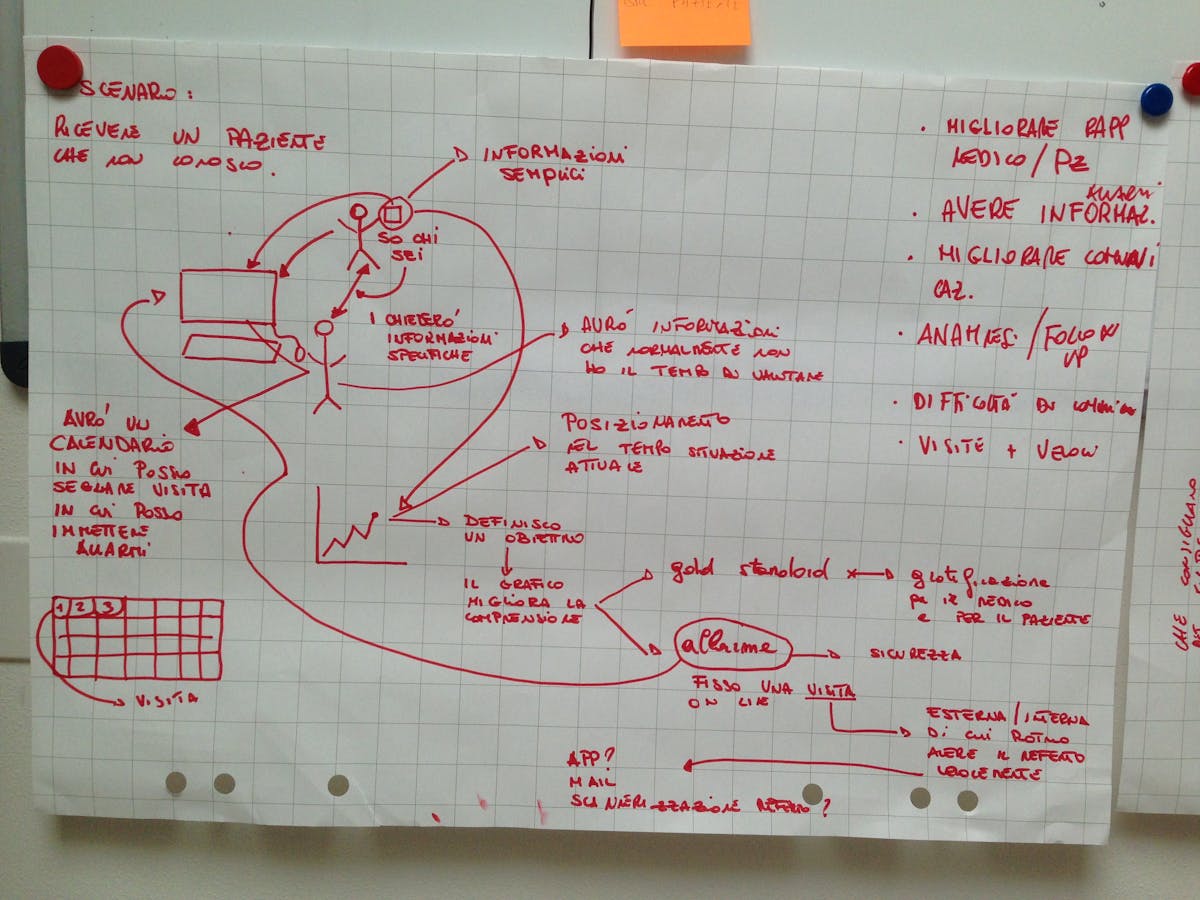 SCENARIO:
RICEVERE UN PAZIENTE
CHE NON CONOSCO.
INFORMAZIONI
SEMPLICI
SO CHI
SEI
CHIEDERO'
INFORMAZIONI
SPECIFICHE
AVRO' INFORMAZIONI
CHE NORMALMENTE NON
HO IL TEMPO DI VALUTARE
AVRO' UN
CALENDARIO
IN CUI POSSO
SEGNARE VISITA
IN CUI POSSO
IMMETTERE
ALLARMI
1 2 3
VISITA
POSIZIONAMENTO
NEL TEMPO SITUAZIONE
ATTUALE
DEFINISCO
UN OBIETTIVO
IL GRAFICO
MIGLIORA LA
COMPRENSIONE
gold standard
PER IL MEDICO
E PER IL PAZIENTE
allarme
SICUREZZA
FISSO UNA VISITA
ON LINE
ESTERNA/INTERNA
DI CUI
AVERE IL REFERTO
VELOCEMENTE
APP?
MAIL
REFERTO?
• MIGLIORARE RAPP
MEDICO/PZ
• AVERE INFORMAZ.
• MIGLIORARE COMUNI
CAZ.
• ANAMNESI/FOLLOW
UP
• DIFFICOLTÀ DI
• VISITE + VELOCI
CHE